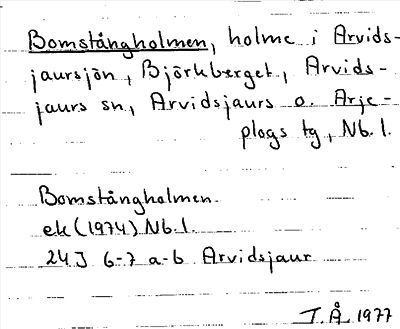 Bomstångholmen, holme i Arvids-
jaursjön, Björkberget, Arvids-
jaurs sn, Arvidsjaurs o. Arje-
plogs tg, Nb. l.
Bomstångholmen.
ek (1974) Nb. l.
24J 6-7 a-b Arvidsjaur
T.Å. 1977